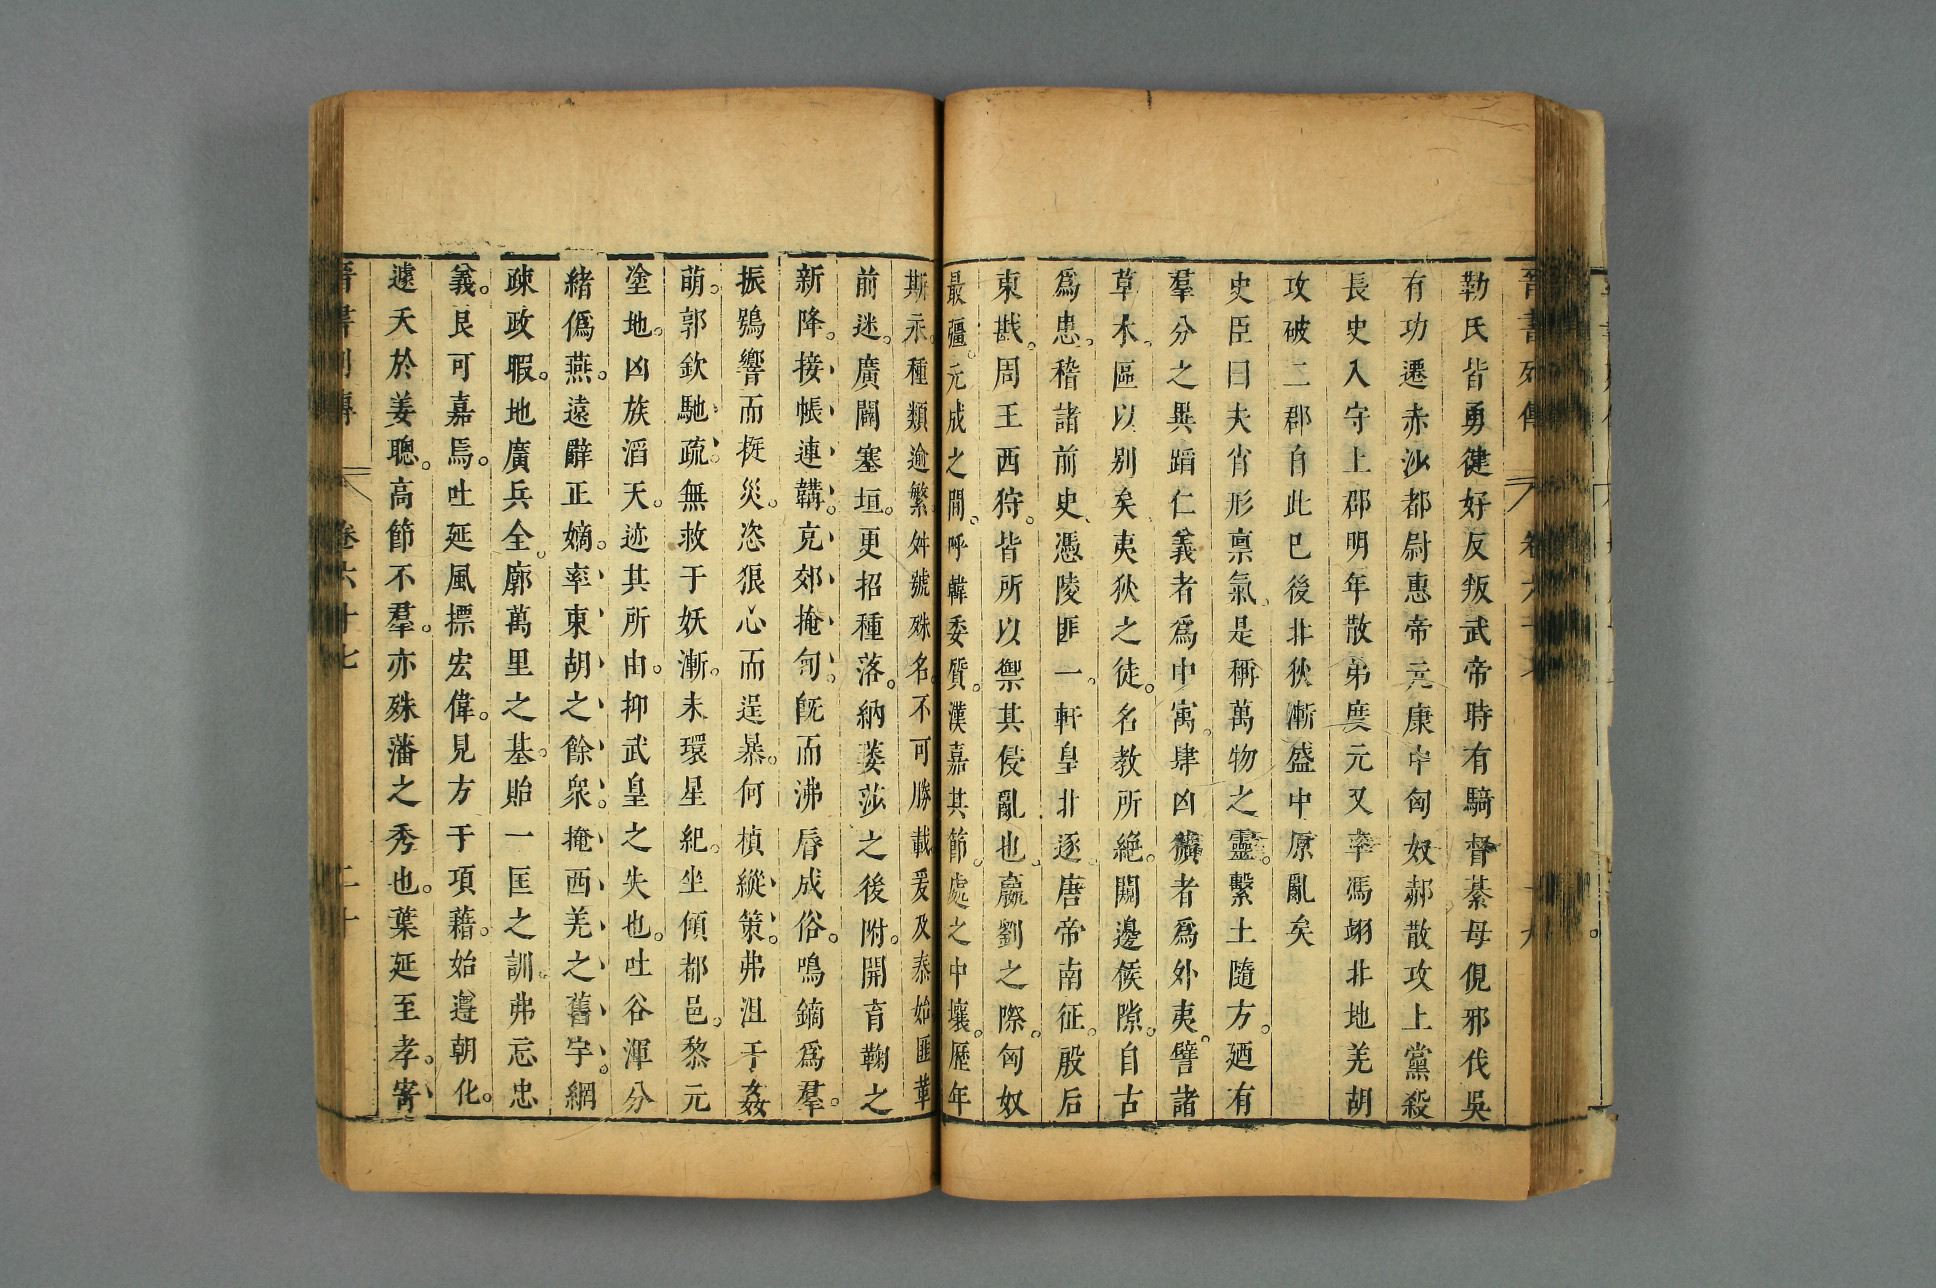 晉書列傳 卷六十七 十九
勒氏皆勇健好友叛武帝時有騎督綦母俔邪伐吳
有功遷赤沙都尉惠帝元康中匈奴郝散攻上黨殺
長史入守上郡明年散弟度元又率馮翊北地羌胡
攻破二郡自此已後北狄漸盛中原亂矣
史臣曰夫肖形禀氣是稱萬物之靈。繫土隨方。廼有
羣分之異蹈仁義者爲中寓。肆凶獷者爲外夷。譬諸
草木。區以别矣夷狄之徒。名教所絶。闚邊候隙。自古
爲患。稽諸前史憑陵匪一。軒皇北逐。唐帝南征。殷后
東戡。周王西狩。皆所以禦其侵亂也。嬴劉之際。匈奴
最疆。元成之間。呼韓委質。漢嘉其節。處之中壤。歷年
斯永。種類逾繁。舛號殊名。不可勝載爰及泰始匪革
前迷。廣闢塞垣。更招種落。納萎莎之後附。開育鞠之
新降。接帳連韝。充郊掩甸。旣而沸脣成俗。鳴鏑爲羣。
振鴞響而挻災。恣狼心而逞暴。何楨縱策。弗沮于姦
萌。郭欽馳疏。無救于妖漸。未環星紀。坐傾都邑。黎元
塗地。凶族滔天。迹其所由。抑武皇之失也。吐谷渾分
緒僞燕。遠辭正嫡。率東胡之餘衆。掩西羌之舊宇。綱
疎政暇。地廣兵全。廓萬里之基。貽一匡之訓。弗忘忠
義。良可嘉焉。吐延風摽宏偉。見方于項藉。始遵朝化。
遽夭於姜聰。高節不羣。亦殊藩之秀也。葉延至孝。寄
晉書列傳 卷六十七 二十